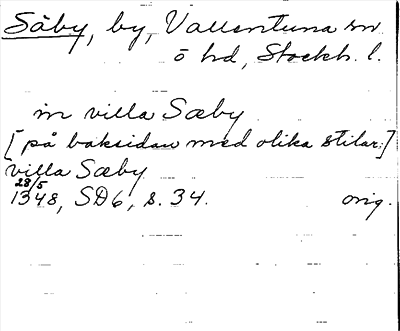 Säby, by, Vallentuna sn
ö hd, Stockh. l.
in villa Sæby
[på baksidan med olika stilar:]
villa Sæby
28/5
1348, SD6, s. 34. orig.